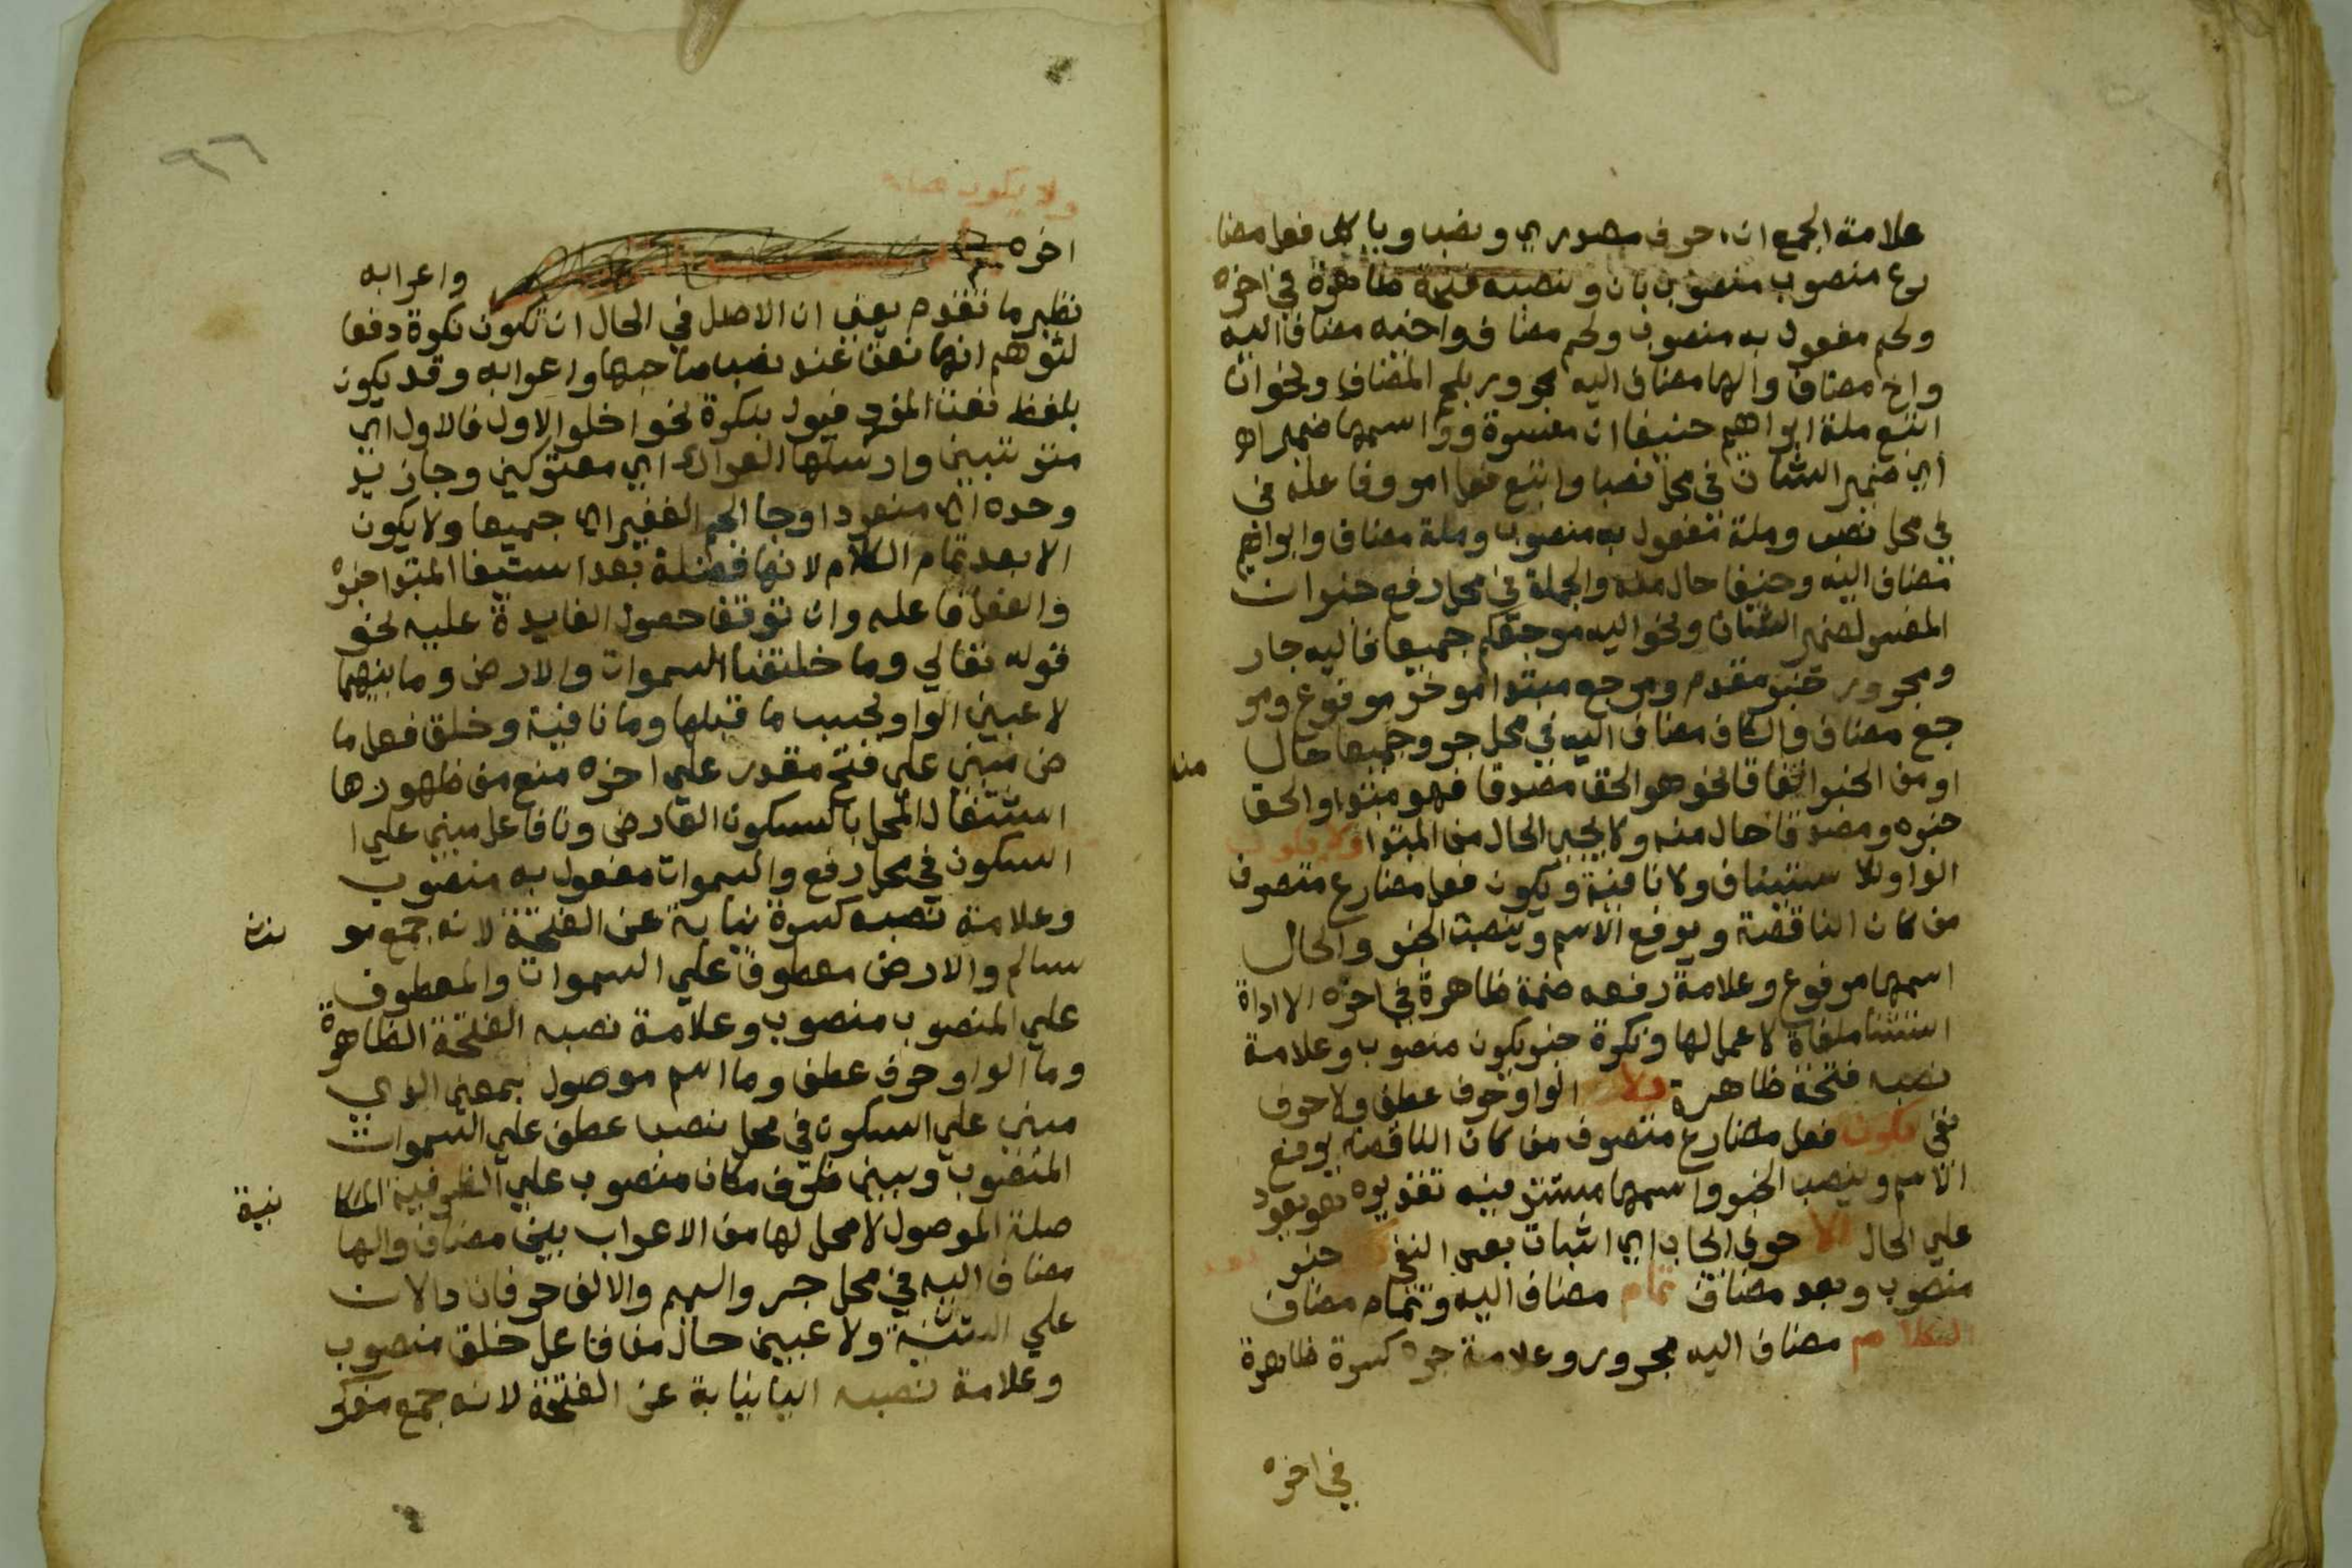 علامة الجمع ان حرف مصدري ونصب وياكل فعل مضا
رع منصوب منصوب بان ونصبه فتحة ظاهرة في اخره
ولحم مفعول به منصوب ولحم مضاف واخيه مضاف اليه
واخ مضاف والها مضاف اليه مجرور بلحم المضاف ونحو ان
اتبع ملة ابراهيم حنيفا ان مفسرة واسمها ضميرا
اي ضمير الشان في محل نصب واتبع فعل امر وفاعله في
في محل نصب وملة مفعول به منصوب وملة مضاف وابراهيم
مضاف اليه وحنيفا حال منه والجملة في محل رفع خبر ان
المفسر لضمير الشان ونحو اليه مرجعكم جميعا فاليه جار
ومجرور خبر مقدم ومرجع مبتدا موخر مرفوع ومر
جع مضاف والكاف مضاف اليه في محل جر وجميعا حال منه
او من الخبر اتفاقا نحو هو الحق مصدقا فهو مبتدا والحق
خبره ومصدقا حال منه ولا يجي الحال من المبتدا ولا يكون
الواو للاستيناف ولا نافية ويكون فعل مضارع متصرف
من كان الناقصة ويرفع الاسم وينصب الخبر والحال
اسمها مرفوع وعلامة رفعه ضمة ظاهرة في اخره الا اداة
استثنا ملغاة لا عمل لها ونكرة خبر يكون منصوب وعلامة
نصبه فتحة ظاهرة ولا الواو حرف عطف ولا حرف
نفي يكون فعل مضارع متصرف من كان الناقصة يرفع
الاسم وينصب الخبر واسمها مستتر فيه تقديره هو يعود
علي الحال الا حرف ايجاب اي اثبات بعد النفي خبر
منصوب وبعد مضاف تمام مضاف اليه وتمام مضاف
الكلام مضاف اليه مجرور وعلامة جره كسرة ظاهرة
في اخره
٩٦
ولا يكون
اخره واعرابه
نظير ما تقدم يعني ان الاصل في الحال ان تكون نكرة دفعا
لتوهم انها نعت عند نصب صاحبها واعرابه وقد يكون
بلفظ المفرد فيول بنكرة نحو ادخلوا الاول فالاول اي
مترتبين وارسلها العراك اي معتركين وجا زيد
وحده اي منفردا وجا الجم الغفير اي جميعا ولا يكون
الا بعد تمام الكلام لانها فضلة بعد استيفا المبتدا خبره
والفعل فاعله وان توقف حصول الفايدة عليه نحو
قوله تعالي وما خلقنا السموات والارض وما بينهما
لاعبين الواو بحسب ما قبلها وما نافية وخلق فعل ما
ض مبني علي فتح مقدر علي اخره منع من ظهورها
اشتغال المحل بالسكون العارض ونا فاعل مبني علي ا
السكون في محل رفع والسموات مفعول به منصوب
وعلامة نصبه كسرة نيابة عن الفتحة لانه جمع مو نث
سالم والارض معطوف علي السموات والمعطوف
علي المنصوب منصوب وعلامة نصبه الفتحة الظاهرة
وما الواو حرف عطف وما اسم موصول بمعني الذي
مبني علي السكون في محل نصب عطف علي السموات
المنصوب وبين ظرف مكان منصوب علي الظرفية المكا نية
صلة الموصول لا محل لها من الاعراب بين مضاف والها
مضاف اليه في محل جر والميم والالف حرفان دالان
علي التثنية ولاعبين حال من فاعل خلق منصوب
وعلامة نصبه اليا نيابة عن الفتحة لانه جمع مذكر